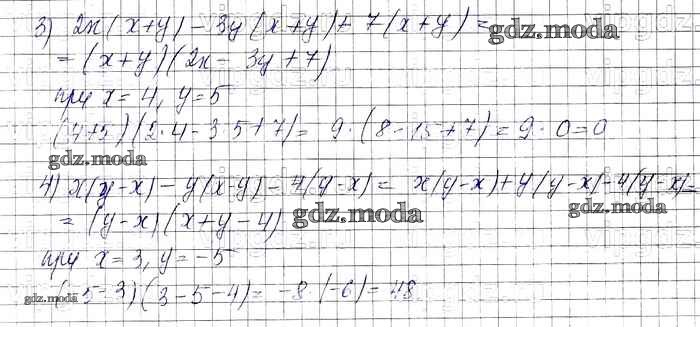 3) 2x(x+y) - 3y(x+y) + 7(x+y) = gdz.moda
= (x+y)(2x - 3y + 7)
при x = 4, y = 5
(4+5)(2·4 - 3·5 + 7) = 9·(8 - 15 + 7) = 9·0 = 0
gdz.moda
4) x(y-x) - y(x-y) - 4(y-x) = x(y-x) + y(y-x) - 4(y-x) =
gdz.moda
= (y-x)(x+y-4) gdz.moda
при x = 3, y = -5
gdz.moda (-5-3)(3-5-4) = -8·(-6) = 48